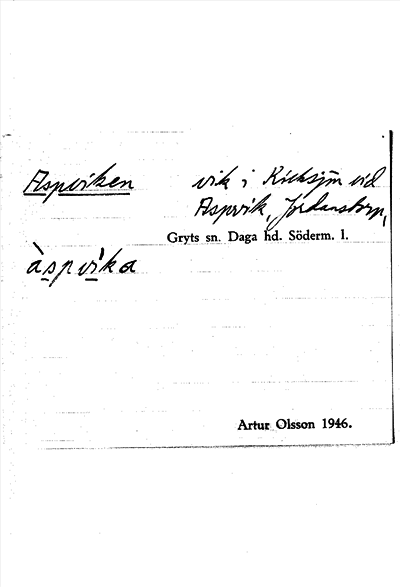 Aspviken
vik i Kicksjön vid
Aspvik, Jordanstorp,
Gryts sn. Daga hd. Söderm. l.
àspvı̀ka
Artur Olsson 1946.